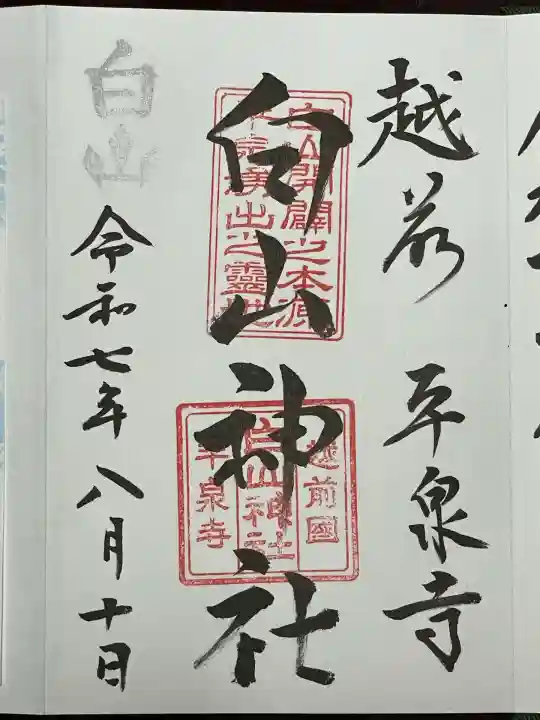 越前 平泉寺
白山開闢之本源
平泉涌出之靈地
白山神社
越前國
白山神社
平泉寺
白山
令和七年八月十日